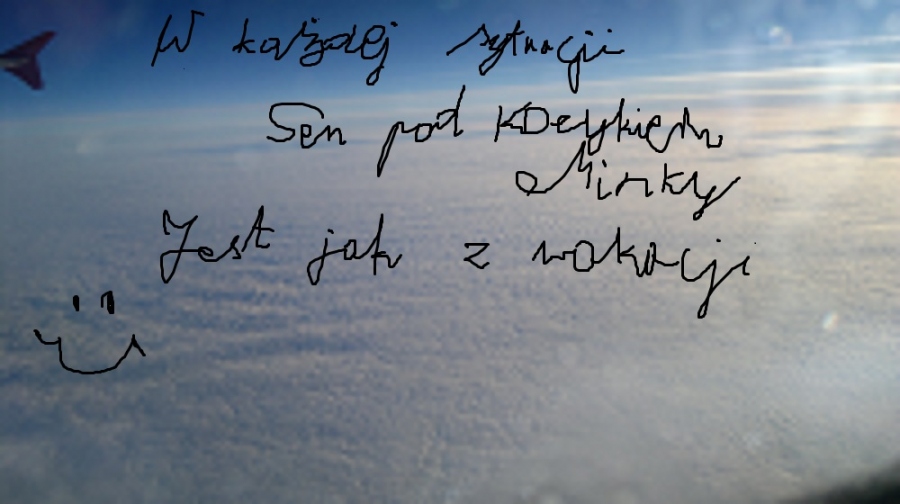 W każdej sytuacji
Sen pod Kocykiem
Minky
Jest jak z wakacji